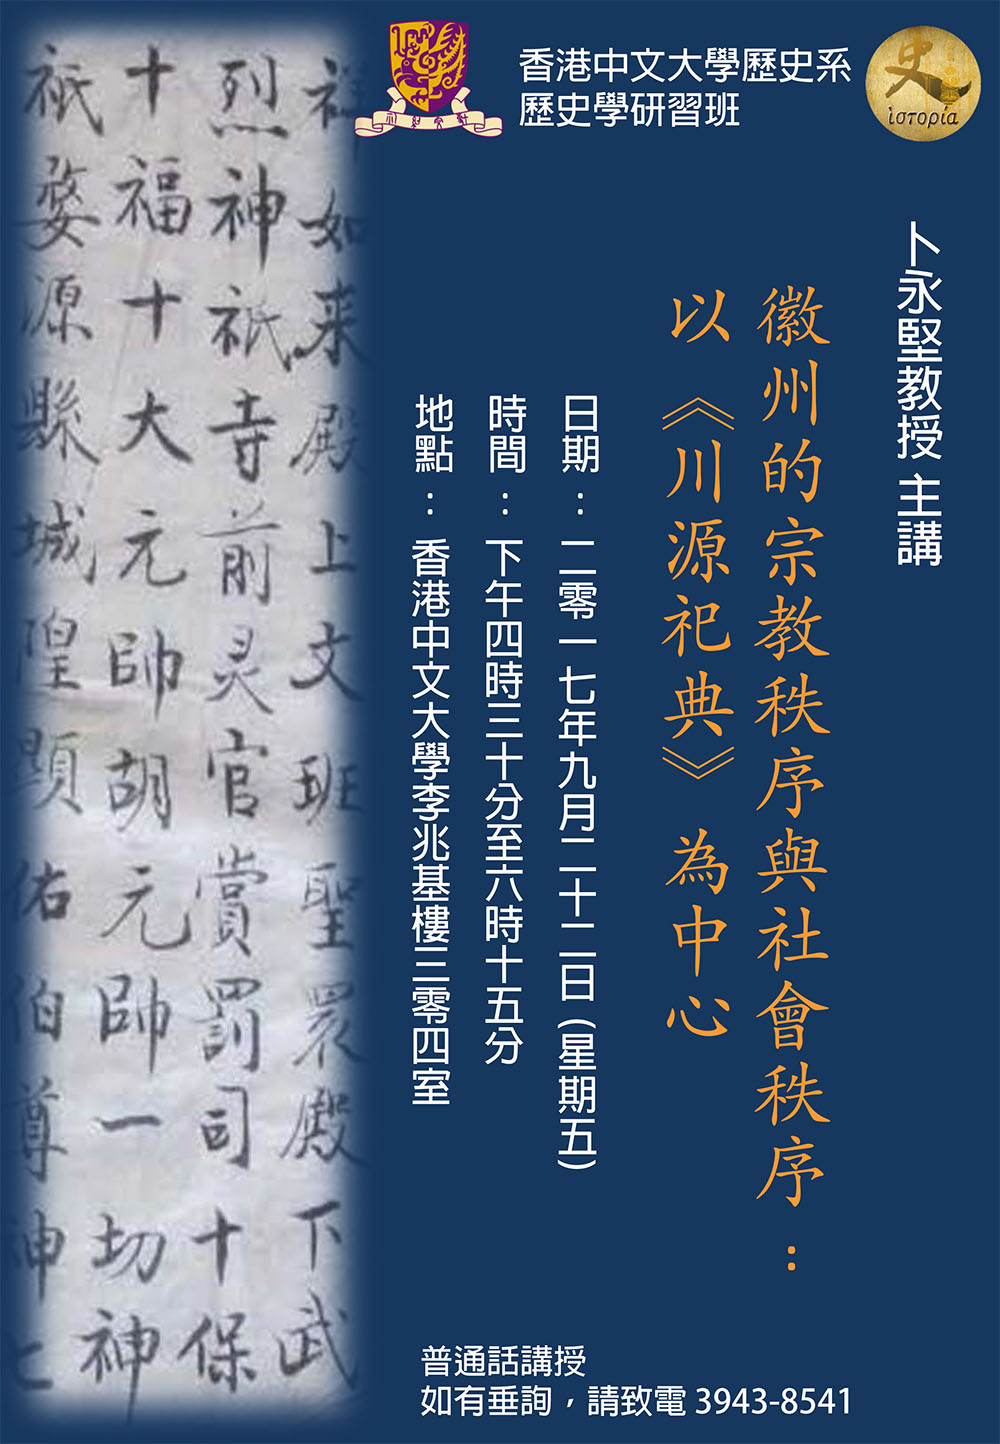 香港中文大學歷史系
歷史學研習班
史
ἱστορία
卜永堅教授 主講
徽州的宗教秩序與社會秩序：
以《川源祀典》為中心
日期：二零一七年九月二十二日 (星期五)
時間：下午四時三十分至六時十五分
地點：香港中文大學李兆基樓三零四室
如来殿上文班聖眾殿下武
烈神祇寺前灵官賞罰司十保
十福十大元帥胡元帥一切神
祇婺源縣城隍顕佑伯尊神
普通話講授
如有垂詢，請致電 3943-8541